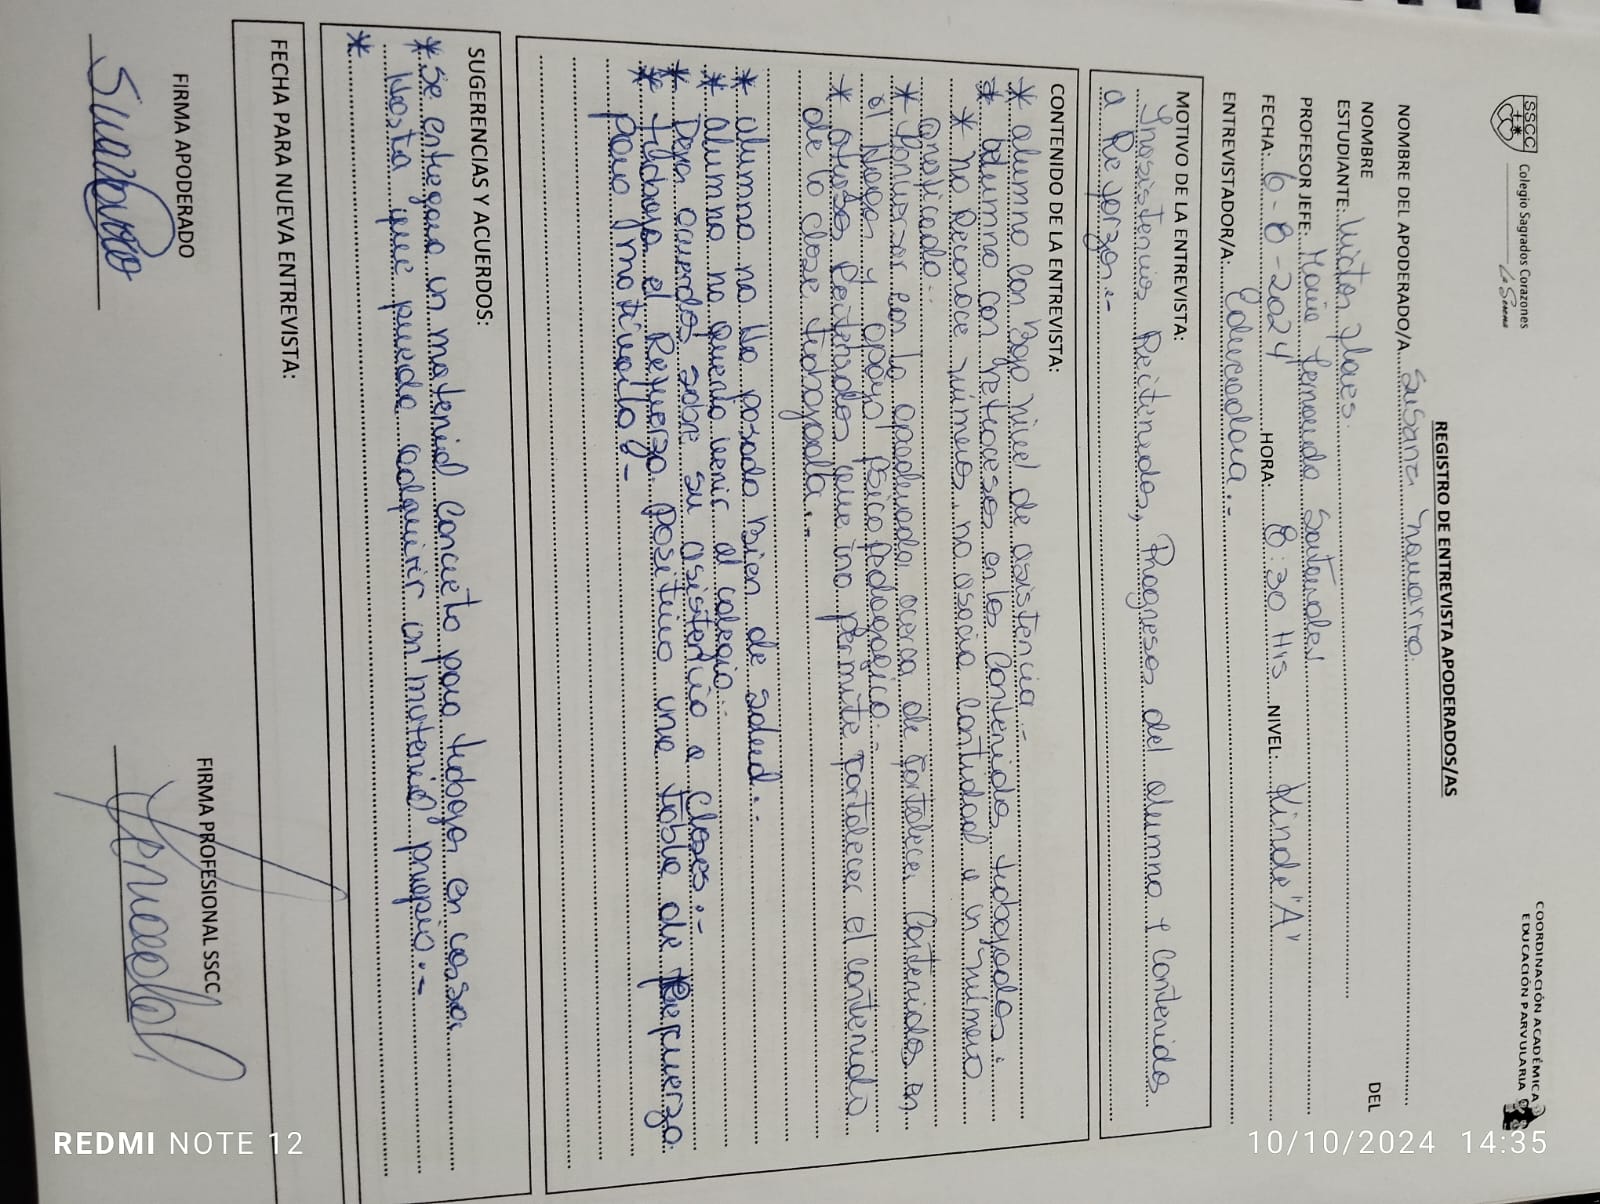 SSCC
Colegio Sagrados Corazones
La Serena
COORDINACIÓN ACADÉMICA
EDUCACIÓN PARVULARIA
REGISTRO DE ENTREVISTA APODERADOS/AS
NOMBRE DEL APODERADO/A Susana Navarro.
NOMBRE DEL
ESTUDIANTE: 
PROFESOR JEFE: María Fernanda Santander
FECHA: 6-8-2024 HORA: 8:30 Hrs NIVEL: Kinder "A"
ENTREVISTADOR/A. Educadora.-
MOTIVO DE LA ENTREVISTA:
Inasistencias Reiteradas, Progresos del alumno y contenidos
a Reforzar.-
CONTENIDO DE LA ENTREVISTA:
* alumno con Bajo nivel de asistencia.-
* alumno con retrocesos en los contenidos trabajados.
* no Reconoce números, no asocia cantidad a un número
Graficado.
* Conversar con la apoderada acerca de fortalecer contenidos en
el Hogar y apoyo psicopedagógico.-
* atrasos Reiterados que no permite fortalecer el contenido
de la clase trabajada.-
* alumno no ha pasado bien de salud.-
* alumno no quería venir al colegio.
* Deja acuerdos sobre su asistencia a clases.-
* trabajar el Refuerzo Positivo una tabla de Refuerzo
para motivarlo.-
SUGERENCIAS Y ACUERDOS:
* Se entregará un material concreto para trabajar en casa.
Hasta que pueda adquirir un material propio.-
*
FECHA PARA NUEVA ENTREVISTA:
FIRMA APODERADO
FIRMA PROFESIONAL SSCC
REDMI NOTE 12
10/10/2024 14:35